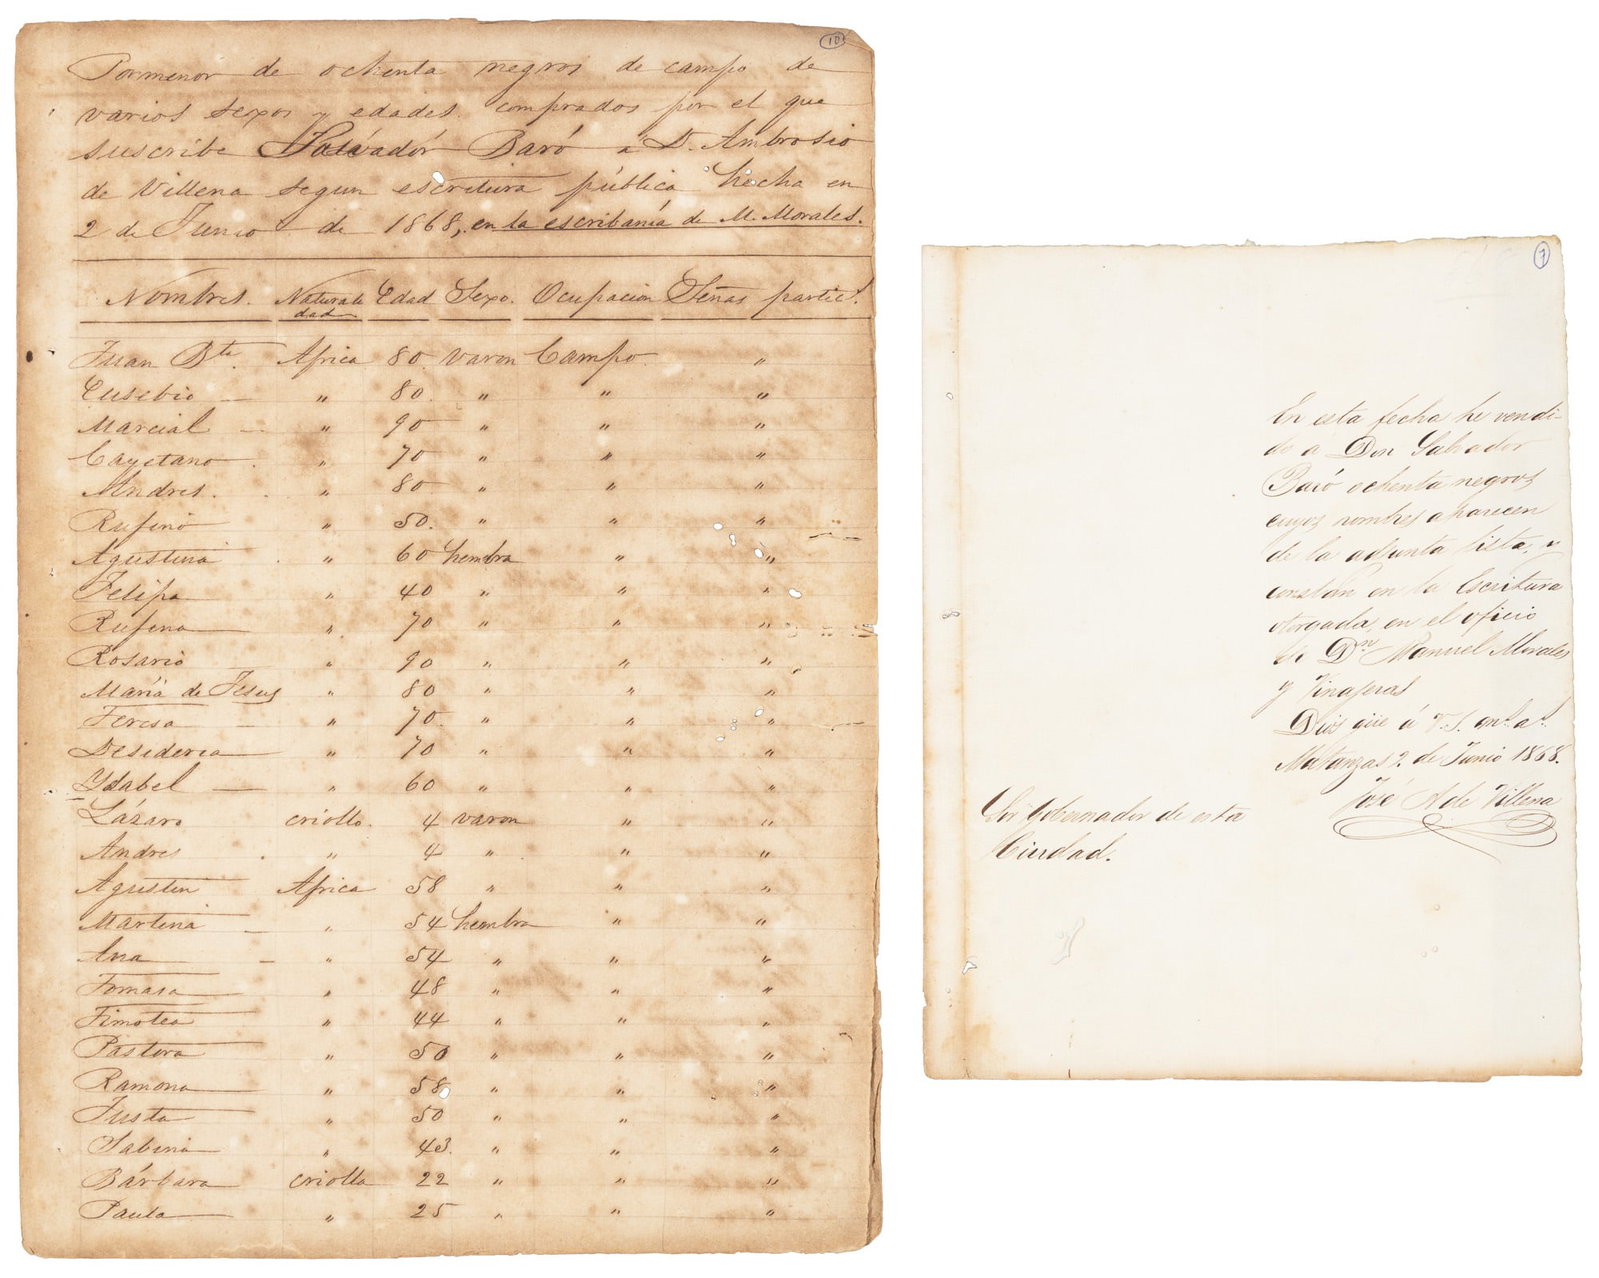 10
Pormenor de ochenta negros de campo de
varios sexos y edades comprados por el que
suscribe Salvador Baró a D. Ambrosio
de Villena segun escritura pública hecha en
2 de Junio de 1868, en la escribanía de M. Morales.
Nombres. Naturalidad Edad Sexo. Ocupacion Señas partics.
Juan Bta. Africa 80. varon Campo. "
Eusebio " 80. " " "
Marcial " 90 " " "
Cayetano " 70 " " "
Andres. " 80 " " "
Rufino " 50. " " "
Agustina " 60 hembra " "
Felipa " 40 " " "
Rufina " 70 " " "
Rosario " 90 " " "
María de Jesus " 80 " " "
Teresa " 70 " " "
Desideria " 70 " " "
Ysabel " 60 " " "
Lázaro criollo. 4 varon " "
Andres " 4 " " "
Agustin Africa 58 " " "
Martina " 54 hembra " "
Ana " 54 " " "
Tomasa " 48 " " "
Timotea " 44 " " "
Pastora " 50 " " "
Ramona " 58 " " "
Justa " 50 " " "
Sabina " 43. " " "
Bárbara criolla 22 " " "
Paula " 25 " " "
7
En esta fecha he vendi-
do á Don Salvador
Baró ochenta negros
cuyos nombres aparecen
de la adjunta lista, y
constan en la Escritura
otorgada en el oficio
de Dn. Manuel Morales
y Vinageras
Dios gûe á V.S. ms. as.
Matanzas 2. de Junio 1868.
José A de Villena
Sor Gobernador de esta
Ciudad.